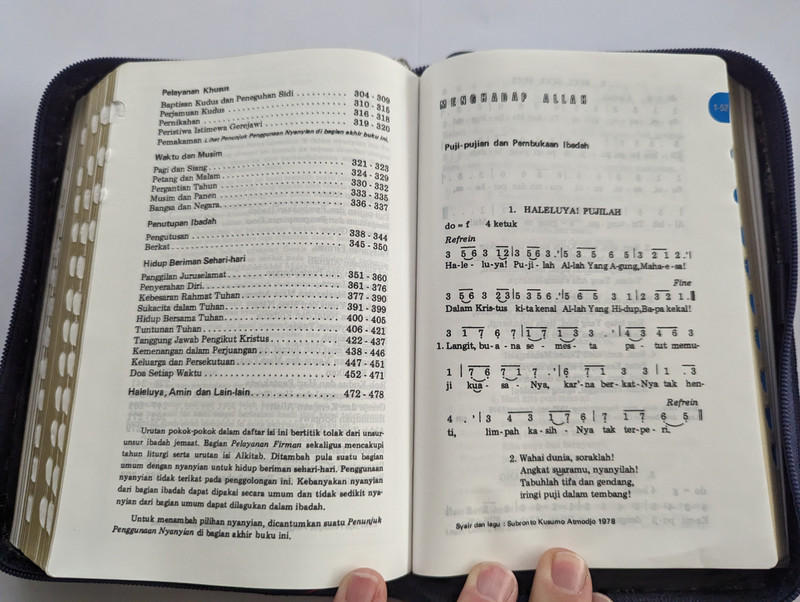 Pelayanan Khusus
Baptisan Kudus dan Peneguhan Sidi .......... 304 - 309
Perjamuan Kudus .......... 310 - 315
Pernikahan .......... 316 - 318
Peristiwa Istimewa Gerejawi .......... 319 - 320
Pemakaman Lihat Penunjuk Penggunaan Nyanyian di bagian akhir buku ini.
Waktu dan Musim
Pagi dan Siang .......... 321 - 323
Petang dan Malam .......... 324 - 329
Pergantian Tahun .......... 330 - 332
Musim dan Panen .......... 333 - 335
Bangsa dan Negara .......... 336 - 337
Penutupan Ibadah
Pengutusan .......... 338 - 344
Berkat .......... 345 - 350
Hidup Beriman Sehari-hari
Panggilan Juruselamat .......... 351 - 360
Penyerahan Diri .......... 361 - 376
Kebesaran Rahmat Tuhan .......... 377 - 390
Sukacita dalam Tuhan .......... 391 - 399
Hidup Bersama Tuhan .......... 400 - 405
Tuntunan Tuhan .......... 406 - 421
Tanggung Jawab Pengikut Kristus .......... 422 - 437
Kemenangan dalam Perjuangan .......... 438 - 446
Keluarga dan Persekutuan .......... 447 - 451
Doa Setiap Waktu .......... 452 - 471
Haleluya, Amin dan Lain-lain .......... 472 - 478
Urutan pokok-pokok dalam daftar isi ini bertitik tolak dari unsur-
unsur ibadah jemaat. Bagian Pelayanan Firman sekaligus mencakupi
tahun liturgi serta urutan isi Alkitab. Ditambah pula suatu bagian
umum dengan nyanyian untuk hidup beriman sehari-hari. Penggunaan
nyanyian tidak terikat pada penggolongan ini. Kebanyakan nyanyian
dari bagian ibadah dapat dipakai secara umum dan tidak sedikit nya-
nyian dari bagian umum dapat dilagukan dalam ibadah.
Untuk menambah pilihan nyanyian, dicantumkan suatu Penunjuk
Penggunaan Nyanyian di bagian akhir buku ini.
MENGHADAP ALLAH
1-52
Puji-pujian dan Pembukaan Ibadah
1. HALELUYA! PUJILAH
do = f 4 ketuk
Refrein
3 5 6 3 1 2 | 5 5 6 3 . ' | 5 3 5 6 5 | 3 2 1 2 . ' |
Ha-le - lu-ya! Pu-ji - lah Al-lah Yang A-gung, Maha-e-sa!
Fine
3 5 6 3 2 3 | 5 3 5 6 . ' | 5 6 5 3 1 | 2 3 2 1 .
Dalam Kris-tus ki-ta kenal Al-lah Yang Hi-dup, Ba-pa kekal!
3 1 7 6 7 | 1 7 1 3 3 . ' | 4 3 4 6 3
1. Langit, bu-a - na se - mes - ta pa - tut memu-
1 | 7 6 7 1 7 . ' | 6 7 1 3 3 | 1 3
ji kua - sa - Nya, kar'-na ber-kat-Nya tak hen-
Refrein
4 . ' | 3 4 3 1 7 6 | 7 1 7 6 5
ti, lim-pah ka-sih - Nya tak ter-pe - ri.
2. Wahai dunia, soraklah!
Angkat suaramu, nyanyilah!
Tabuhlah tifa dan gendang,
iringi puji dalam tembang!
Syair dan lagu : Subronto Kusumo Atmodjo 1978